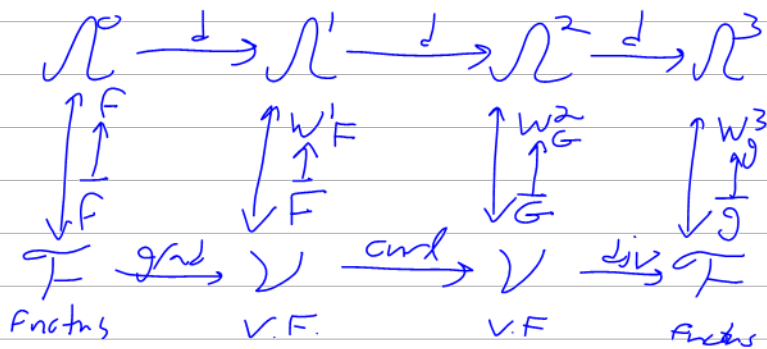 Ω⁰ d Ω¹ d Ω² d Ω³
F W¹F W²G W³g
F F G g
F grad V curl V div F
Functns V.F. V.F Functns